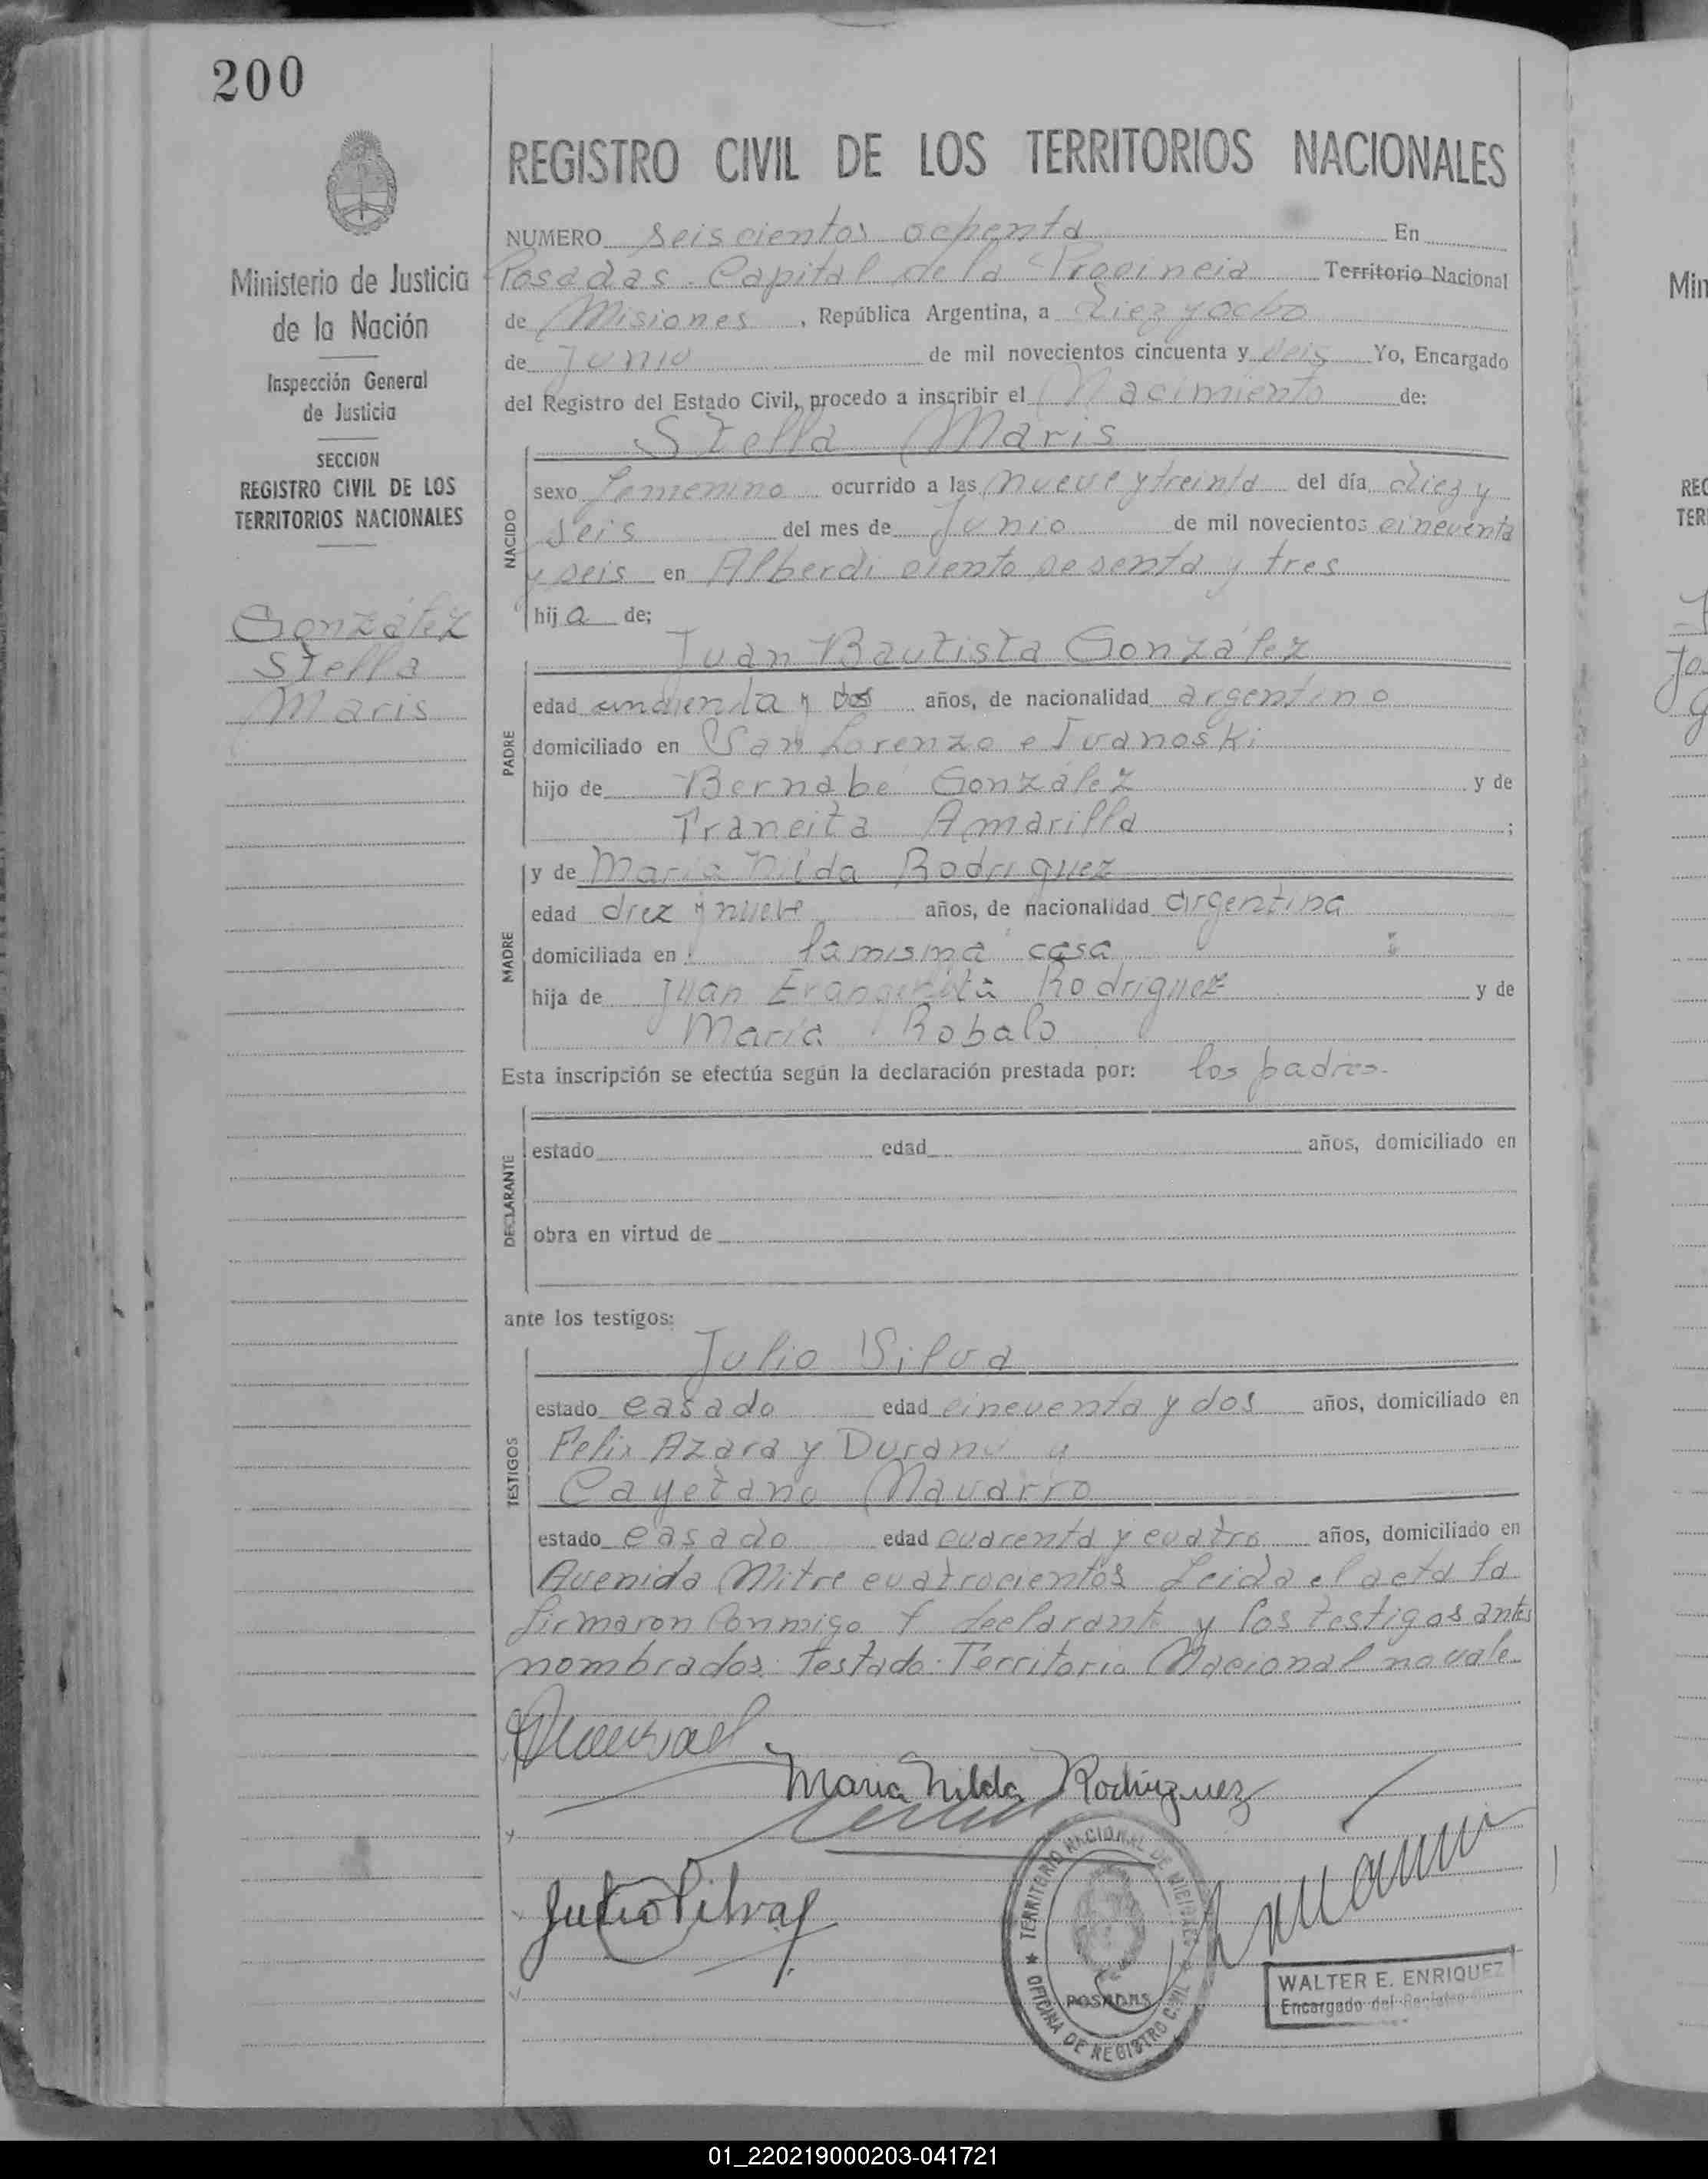 200
REGISTRO CIVIL DE LOS TERRITORIOS NACIONALES
Ministerio de Justicia
de la Nación
Inspección General
de Justicia
SECCION
REGISTRO CIVIL DE LOS
TERRITORIOS NACIONALES
González
Stella
Maris
NUMERO seiscientos ochenta En
Posadas. Capital de la Provincia Territorio Nacional
de Misiones, República Argentina, a diez y ocho
de Junio de mil novecientos cincuenta y seis Yo, Encargado
del Registro del Estado Civil, procedo a inscribir el Nacimiento de:
Stella Maris
NACIDO
sexo femenino ocurrido a las nueve y treinta del día diez y
seis del mes de Junio de mil novecientos cincuenta
y seis en Alberdi ciento sesenta y tres
hija de;
PADRE
Juan Bautista González
edad y dos años, de nacionalidad argentino
domiciliado en San Lorenzo e Ivanoski
hijo de Bernabé González y de
Trancita Amarilla ;
MADRE
y de Maria Nilda Rodriguez
edad diez y nueve años, de nacionalidad argentina
domiciliada en la misma casa
hija de Juan Evangelista Rodriguez y de
María Robalo
Esta inscripción se efectúa según la declaración prestada por: los padres.
DECLARANTE
estado edad años, domiciliado en
obra en virtud de
ante los testigos:
TESTIGOS
Julio Silva
estado casado edad cincuenta y dos años, domiciliado en
Felix Azara y y
Cayetano Navarro
estado casado edad cuarenta y cuatro años, domiciliado en
Avenida Mitre cuatrocientos Leida el acta la
firmaron conmigo declarante y los testigos antes
nombrados. Testado: Territorio Nacional no vale
Maria Nilda Rodriguez
Julio Silva
TERRITORIO NACIONAL DE MISIONES
POSADAS
OFICINA DE REGISTRO CIVIL
WALTER E. ENRIQUEZ
Encargado del Registro
Min
REG
TER
01_220219000203-041721